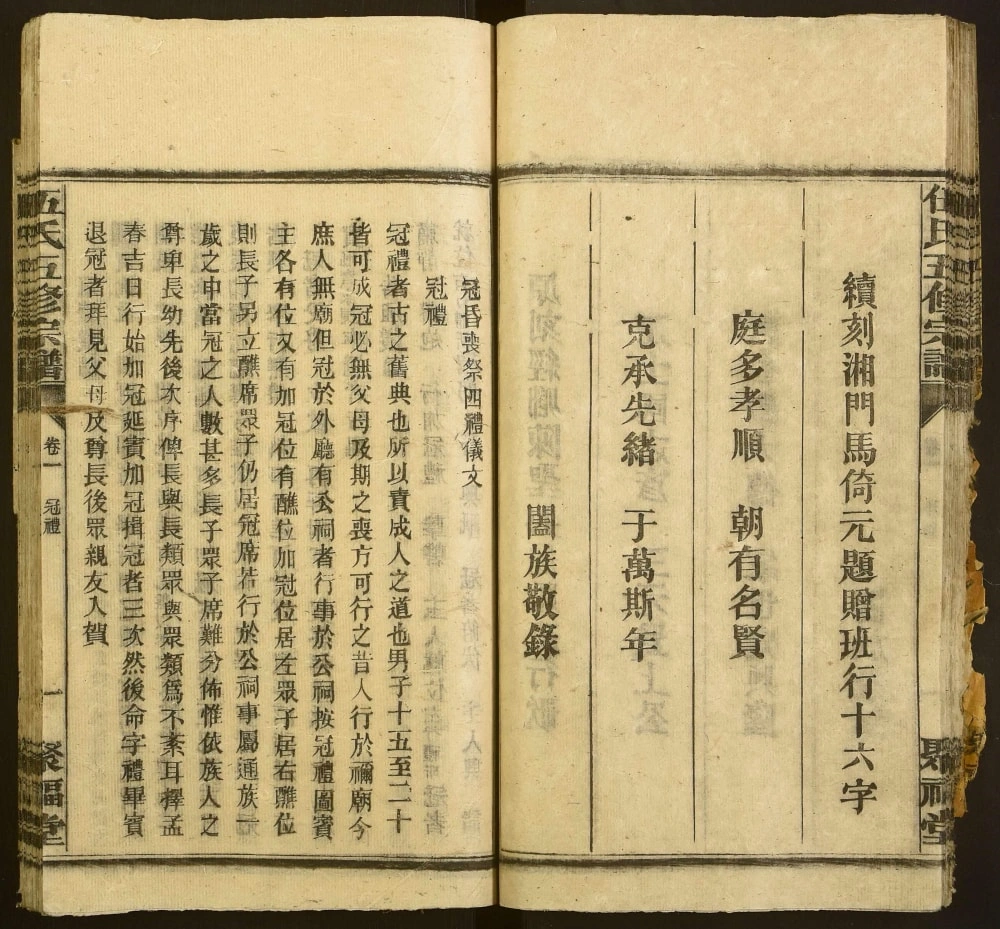 續刻湘門馬倚元題贈班行十六字
庭多孝順　朝有名賢
克承先緒　于萬斯年
闔族敬錄
冠昏喪祭四禮儀文
冠禮
冠禮者古之舊典也所以責成人之道也男子十五至二十
皆可成冠必無父母及期之喪方可行之昔人行於禰廟今
庶人無廟但冠於外廳有公祠者行事於公祠按冠禮圖賓
主各有位又有加冠位有醮位加冠位居左眾子居右醮位
則長子另立醮席眾子仍居冠席若行於公祠事屬通族元
歲之中當冠之人數甚多長子眾子席難分佈惟依族人之
尊卑長幼先後次序俾長與長類眾與眾類為不紊耳擇孟
春吉日行始加冠延賓加冠揖冠者三次然後命字禮畢賓
退冠者拜見父母及尊長後眾親友入賀
伍氏五修宗譜
卷一
冠禮
一
聚福堂
伍氏五修宗譜
聚福堂